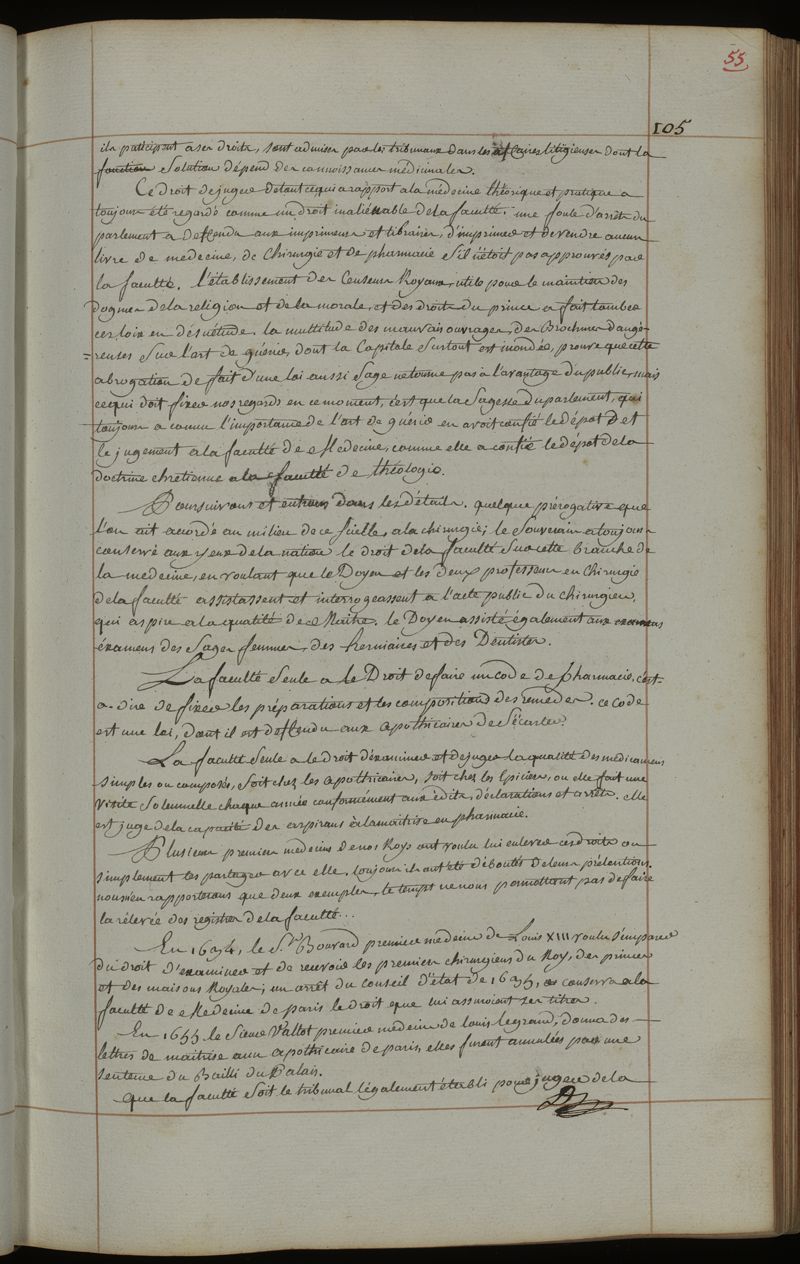 55
105
ils participent à ses droits, sont admises par les tribunaux dans les affaires litigieuses dont la
fonction solution dépend des connoissances médicinales.
Ce droit de juger de tout ce qui a rapport a la médecine théorique et pratique a
toujours été regardé comme un droit inaliénable de la faculté. une foule d'arrêts du
parlement a deffendu aux imprimeurs et libraires, d'imprimer et de vendre aucun
livre de medecine, de Chirurgie et de pharmacie s'il n'étoit pas approuvés par
la faculté. l'établissement des Censeurs Royaux, utile pour le maintien des
dogmes de la religion et de la morale, et des droits du prince a fait tomber
ces loix en désuétude. la multitude des mauvais ouvrages, des Brochures dange-
=reuses sur l'art de guérir, dont la Capitale surtout est inondée, prouve que cette
abrogation de fait d'une loi aussi sage ne tourne pas à l'avantage du public, mais
ce qui doit fixer nos regards en ce moment, c'est que la sagesse du parlement, qui
toujours a connu l'importance de l'art de guérir en avoit confié le dépot et
le jugement a la faculté de Medecine, comme elle a confié le dépot de la
doctrine chretienne a la faculté de théologie.
Poursuivons et entrons dans les détails. quelque prérogative que
l'on ait acordé au milieu de ce siecle, a la chirurgie; le souverain a toujours
conservé aux yeux de la nation le droit de la faculté sur cette branche de
la medecine, en voulant que le Doyen et les deux professeurs en Chirurgie
de la faculté assistassent et interrogeassent a l'acte public du chirurgien,
qui aspire a la qualité de Maitre. le Doyen assiste également aux examens
éxamens des Sages femmes, des herniaires et des Dentistes.
La faculté seule a le Droit de faire un code de pharmacie, c'est-
a-dire de fixer les préparations et les compositions des remedes. ce code
est une loi, dont il est deffendu aux apothicaires de s'écarter.
La faculté seule a le droit d'examiner et de juger la qualité des médicamens
simples ou composés, soit chez les apothicaires, soit chez les Epiciers, ou elle fait une
visite solennelle chaque année conformément aux édits, déclarations et arrêts. elle
est juge de la capacité des aspirans à la maitrise en pharmacie.
Plusieurs premiers medecins de nos Roys ont voulu lui enlever ces droits ou
simplement les partager avec elle, toujours ils ont été déboutés de leurs prétentions.
nous n'en rapporterons que deux exemples, le temps ne nous permettant pas de faire
la rélevée des registres de la faculté...
En 1634, le S.r Bouvard premier medecin de Louis XIII voulu s'emparer
du droit d'examiner et de recevoir les premiers chirurgiens du Roy, des princes
et des maisons Royales; un arrêt du conseil d'état de 1635, conserva a la
faculté de Medecine de paris le droit que lui assuroient ses titres.
En 1655 le Sieur Vallot premier médecin de louis le grand, donna des
lettres de maitrise a un apothicaire de paris, elles furent annulées par une
sentence du Bailli du Palais.
Que la faculté soit le tribunal légalement établi pour juger de la